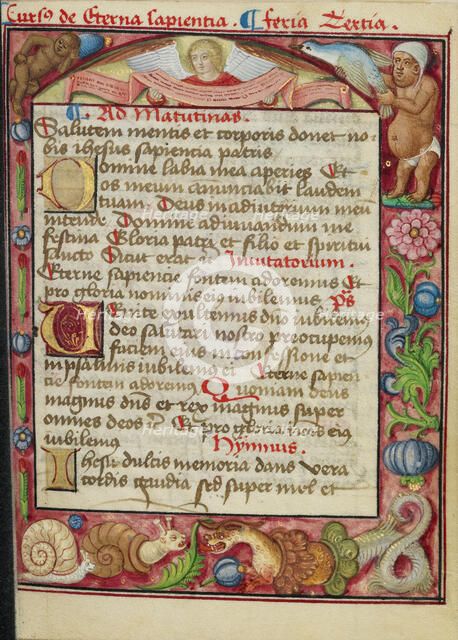 Cursus de Eterna sapientia. ¶ feria Tertia.
¶ Ad Matutinas.
Salutem mentis et corporis donet no
bis ihesus sapientia patris
Domine labia mea aperies Et
os meum anunciabit laudem
tuam Deus in adiutorium meu
intende Domine adiuuandum me
festina Gloria patri et filio et spiritui
sancto Sicut erat et Inuitatorium.
Eterne sapiencie fontem adoremus Et
pro gloria nominis eius iubilemus Ps
Uenite exultemus dno iubilemus
deo salutari nostro preocupemus
faciem eius in confessione et
in psalmis iubilemus ei Eterne sapien
cie fontem adoremus Quoniam deus
magnus dns et rex magnus super
omnes deos Et pro gloria nominis eius
iubilemus Hymnus.
Ihesu dulcis memoria dans vera
cordis gaudia sed super mel et
Heritage
Heritage
Heritage
Heritage